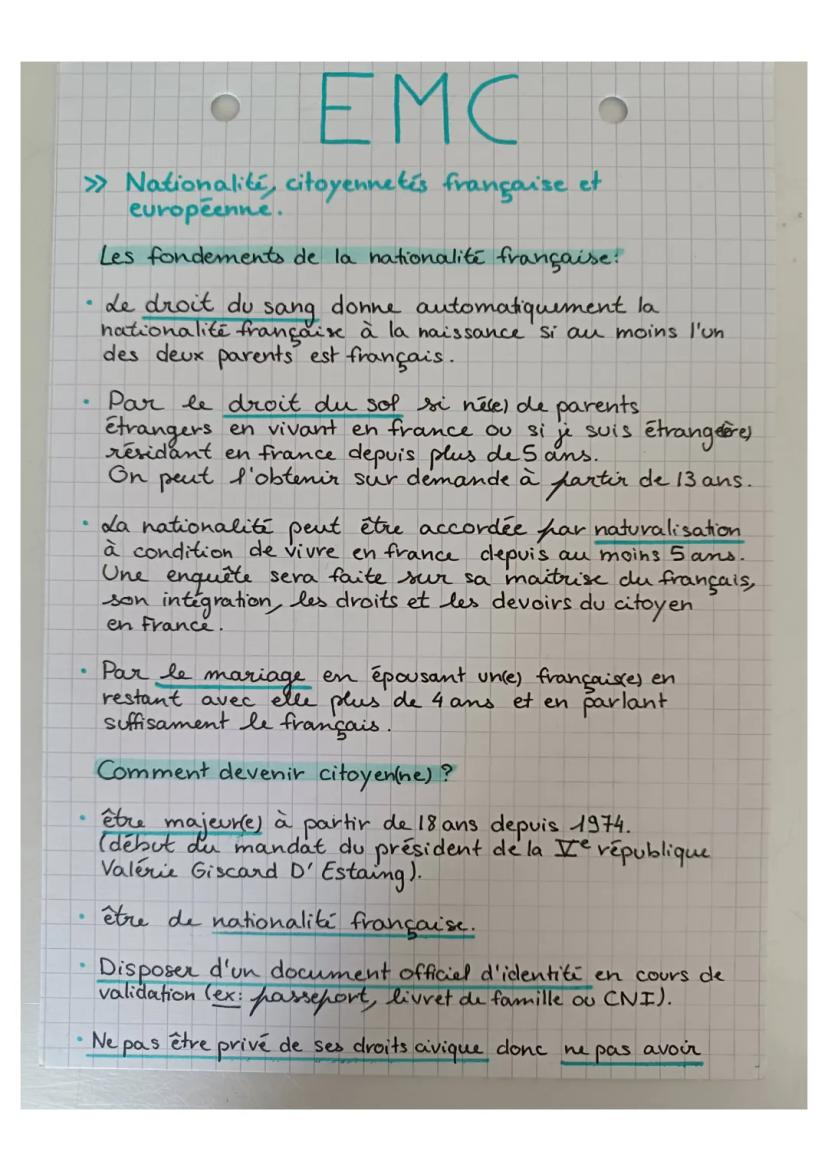 EMC
>> Nationalité, citoyennetés française et
européenne.
Les fondements de la nationalité française:
• Le droit du sang donne automatiquement la
nationalité française à la naissance si au moins l'un
des deux parents est français.
• Par le droit du sol si né(e) de parents
étrangers en vivant en france ou si je suis étrangère)
résidant en france depuis plus de 5 ans.
On peut l'obtenir sur demande à partir de 13 ans.
• La nationalité peut être accordée par naturalisation
à condition de vivre en france depuis au moins 5 ans.
Une enquête sera faite sur sa maitrise du français,
son intégration, les droits et les devoirs du citoyen
en France.
• Par le mariage en épousant un(e) français(e) en
restant avec elle plus de 4 ans et en parlant
suffisament le français.
Comment devenir citoyen(ne) ?
• être majeur(e) à partir de 18 ans depuis 1974.
(début du mandat du président de la Ve république
Valérie Giscard D'Estaing).
• être de nationalité française.
• Disposer d'un document officiel d'identité en cours de
validation (ex: passeport, livret de famille ou CNI).
• Ne pas être privé de ses droits civique donc ne pas avoir